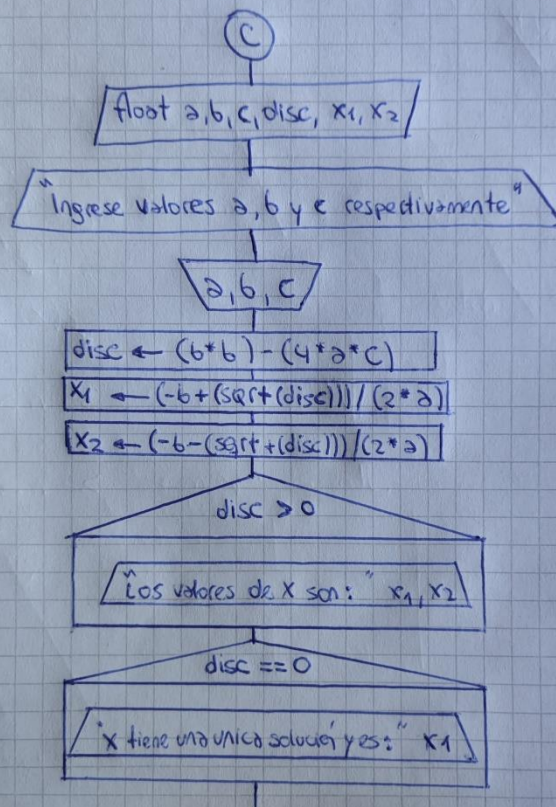 C
float a, b, c, disc, x1, x2
"Ingrese valores a, b y c respectivamente"
a, b, c
disc ← (b*b) - (4*a*c)
x1 ← (-b+(sqrt(disc)))/(2*a)
x2 ← (-b-(sqrt+(disc)))/(2*a)
disc > 0
"Los valores de x son:" x1, x2
disc == 0
"x tiene una unica solución y es:" x1